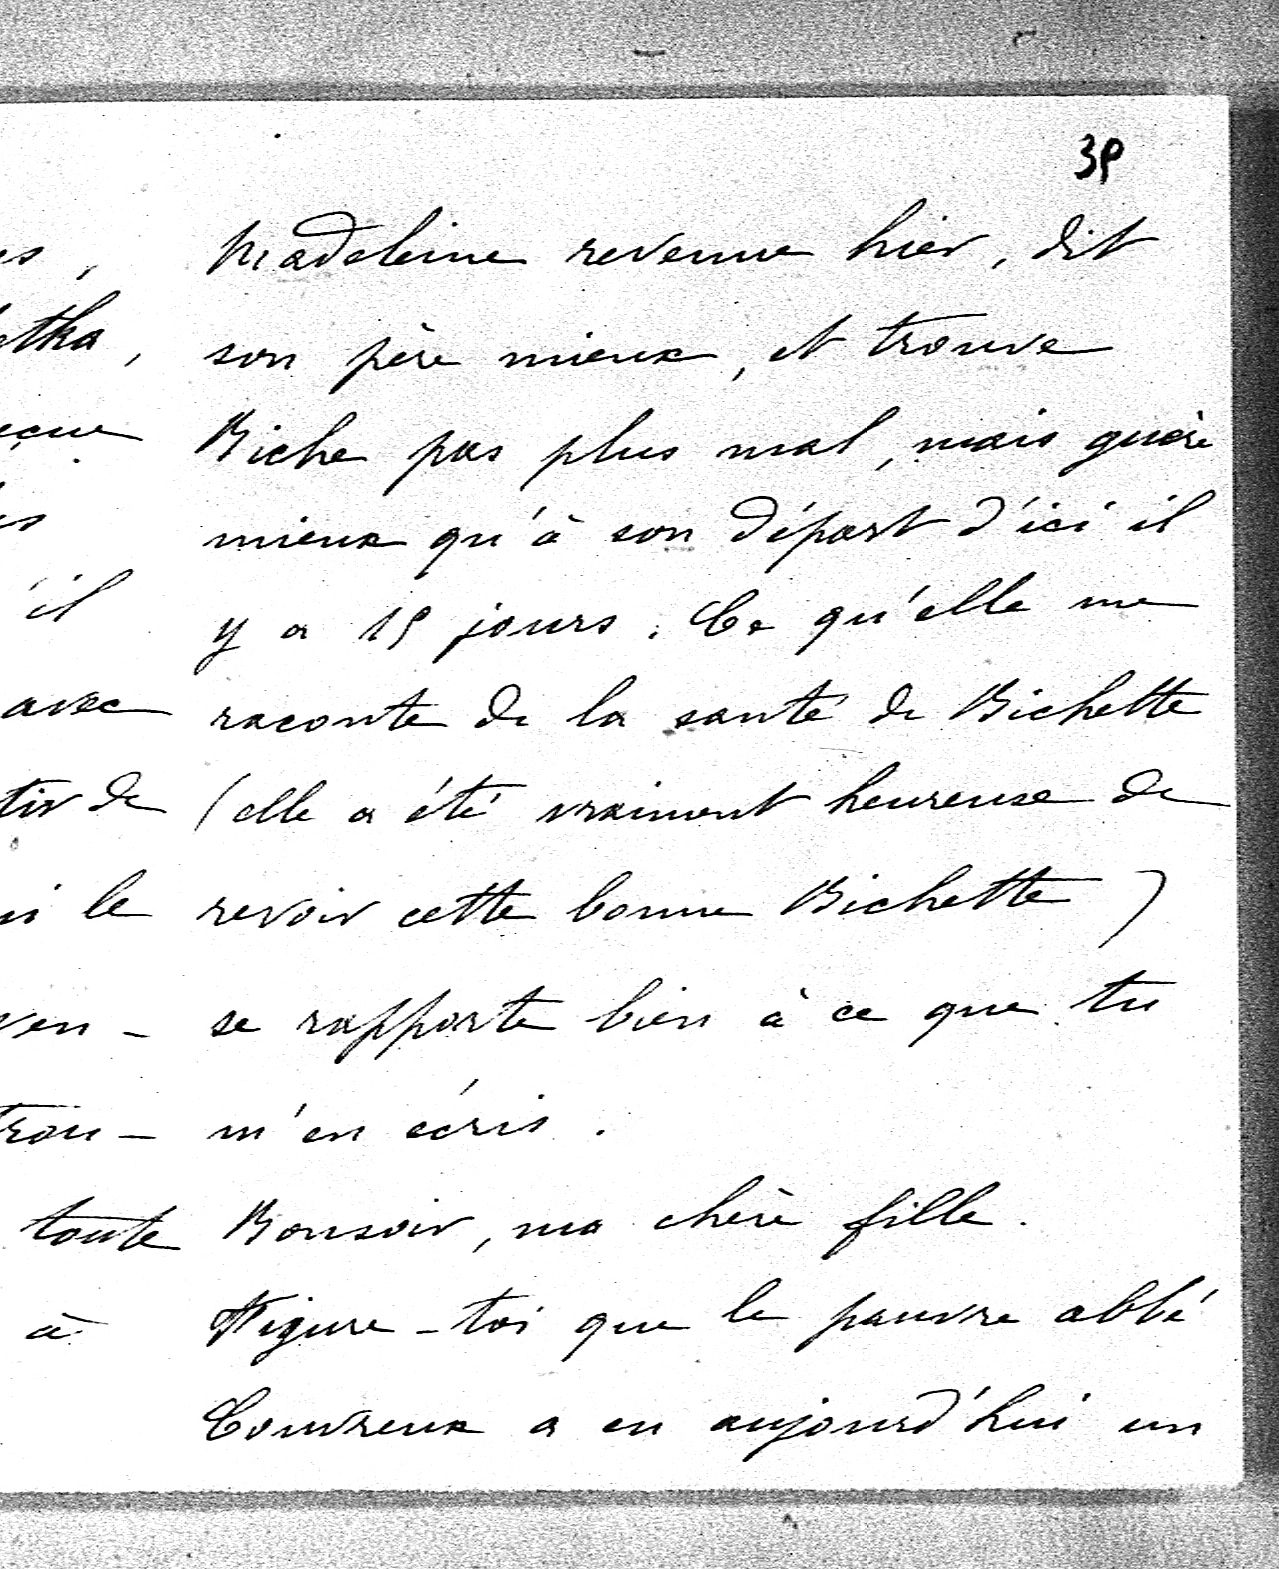 39
Madeleine revenue hier, dit
son père mieux, et trouve
Biche pas plus mal, mais guère
mieux qu'à son départ d'ici il
y a 15 jours. Ce qu'elle me
raconte de la santé de Bichette
(elle a été vraiment heureuse de
revoir cette bonne Bichette)
se rapporte bien à ce que tu
m'en écris.
Bonsoir, ma chère fille.
Figure-toi que le pauvre abbé
Couvreux a eu aujourd'hui un
avec
de
le
toute
à